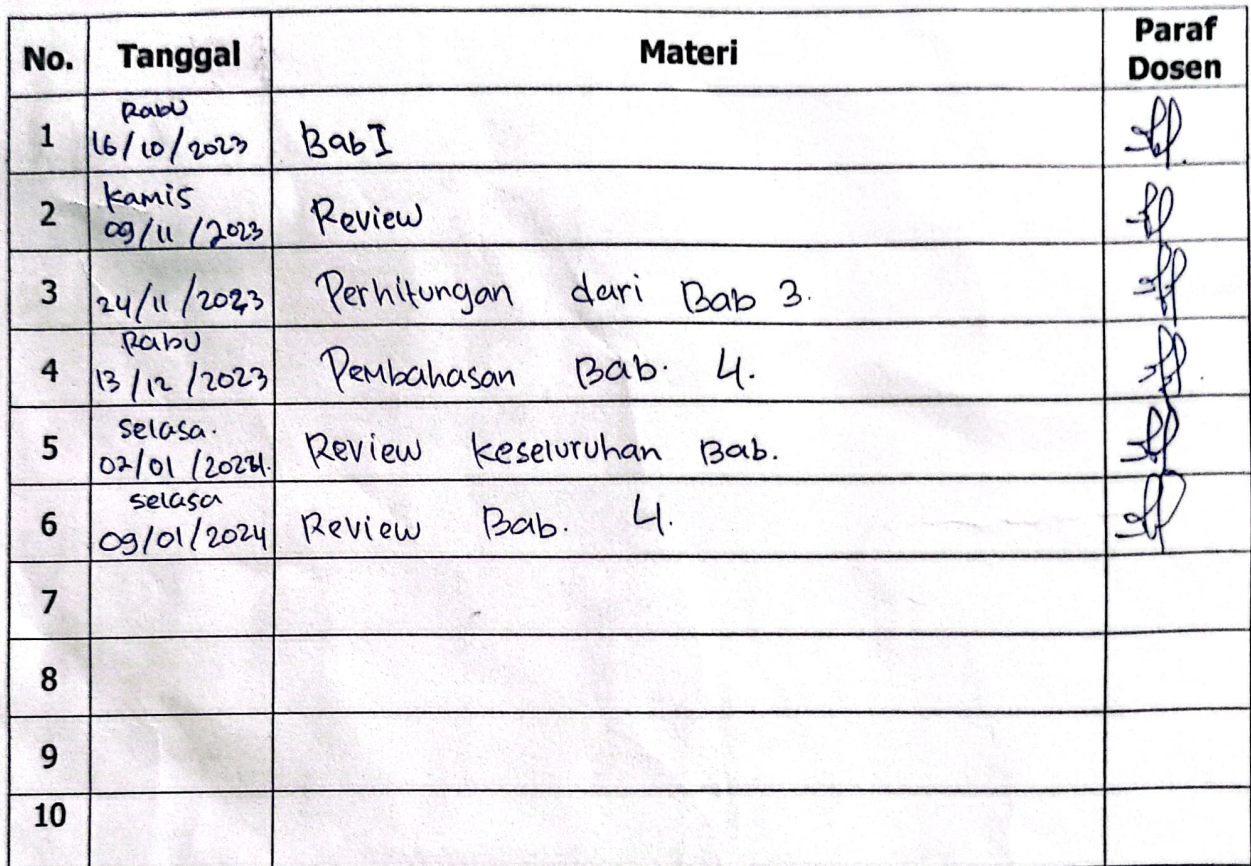 No. Tanggal Materi Paraf Dosen
Rabu
1 16/10/2023 Bab I
Kamis
2 09/11/2023 Review
3 24/11/2023 Perhitungan dari Bab 3.
Rabu
4 13/12/2023 Pembahasan Bab. 4.
Selasa.
5 02/01/2024. Review keseluruhan Bab.
Selasa
6 09/01/2024 Review Bab. 4.
7
8
9
10